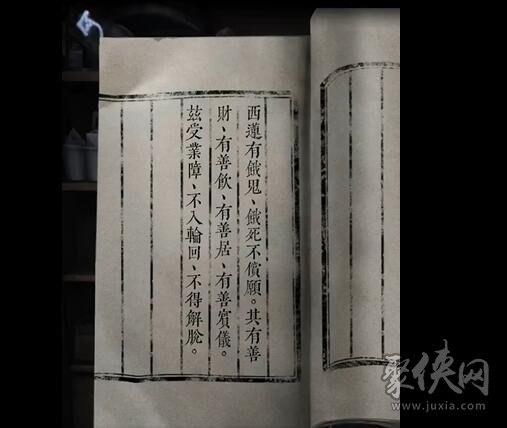 西蓮有餓鬼、餓死不償願。其有善
財、有善飲、有善居、有善賓儀。
玆受業障、不入輪回、不得解脫。
聚侠网
www.juxia.com